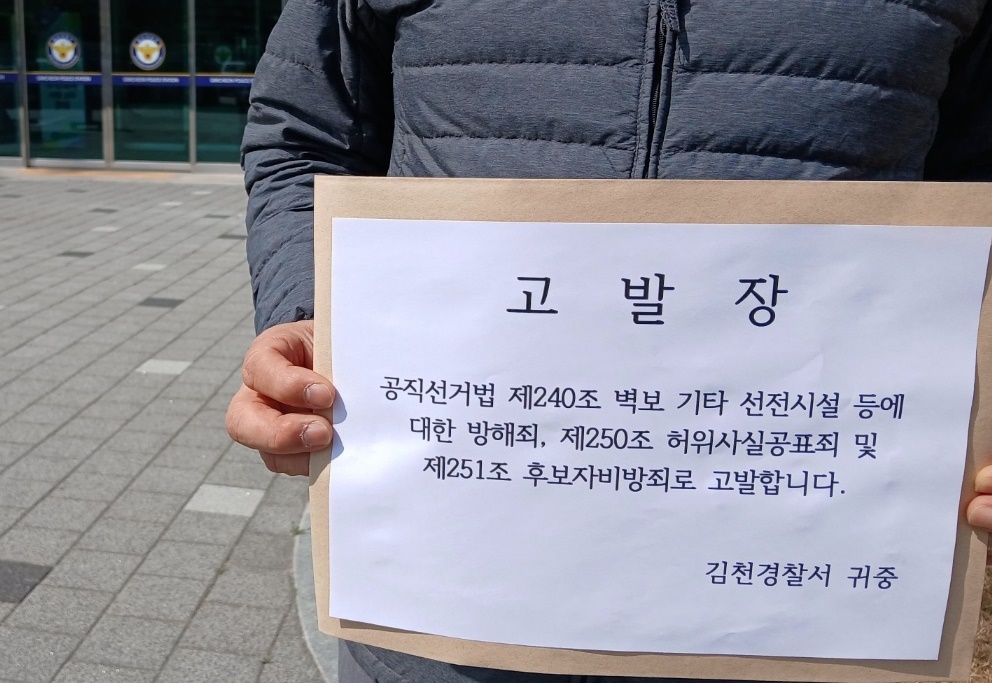 고 발 장
공직선거법 제240조 벽보 기타 선전시설 등에
대한 방해죄, 제250조 허위사실공표죄 및
제251조 후보자비방죄로 고발합니다.
김천경찰서 귀중